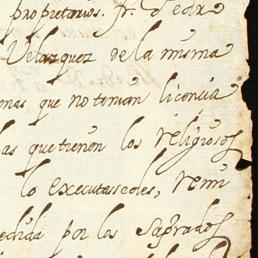 proprietarios. fr. Pedro
Velazquez de la misma
mas que no tenian licencia
las que tienen los religiosos
lo executassedes, remi
edida por los sagrados